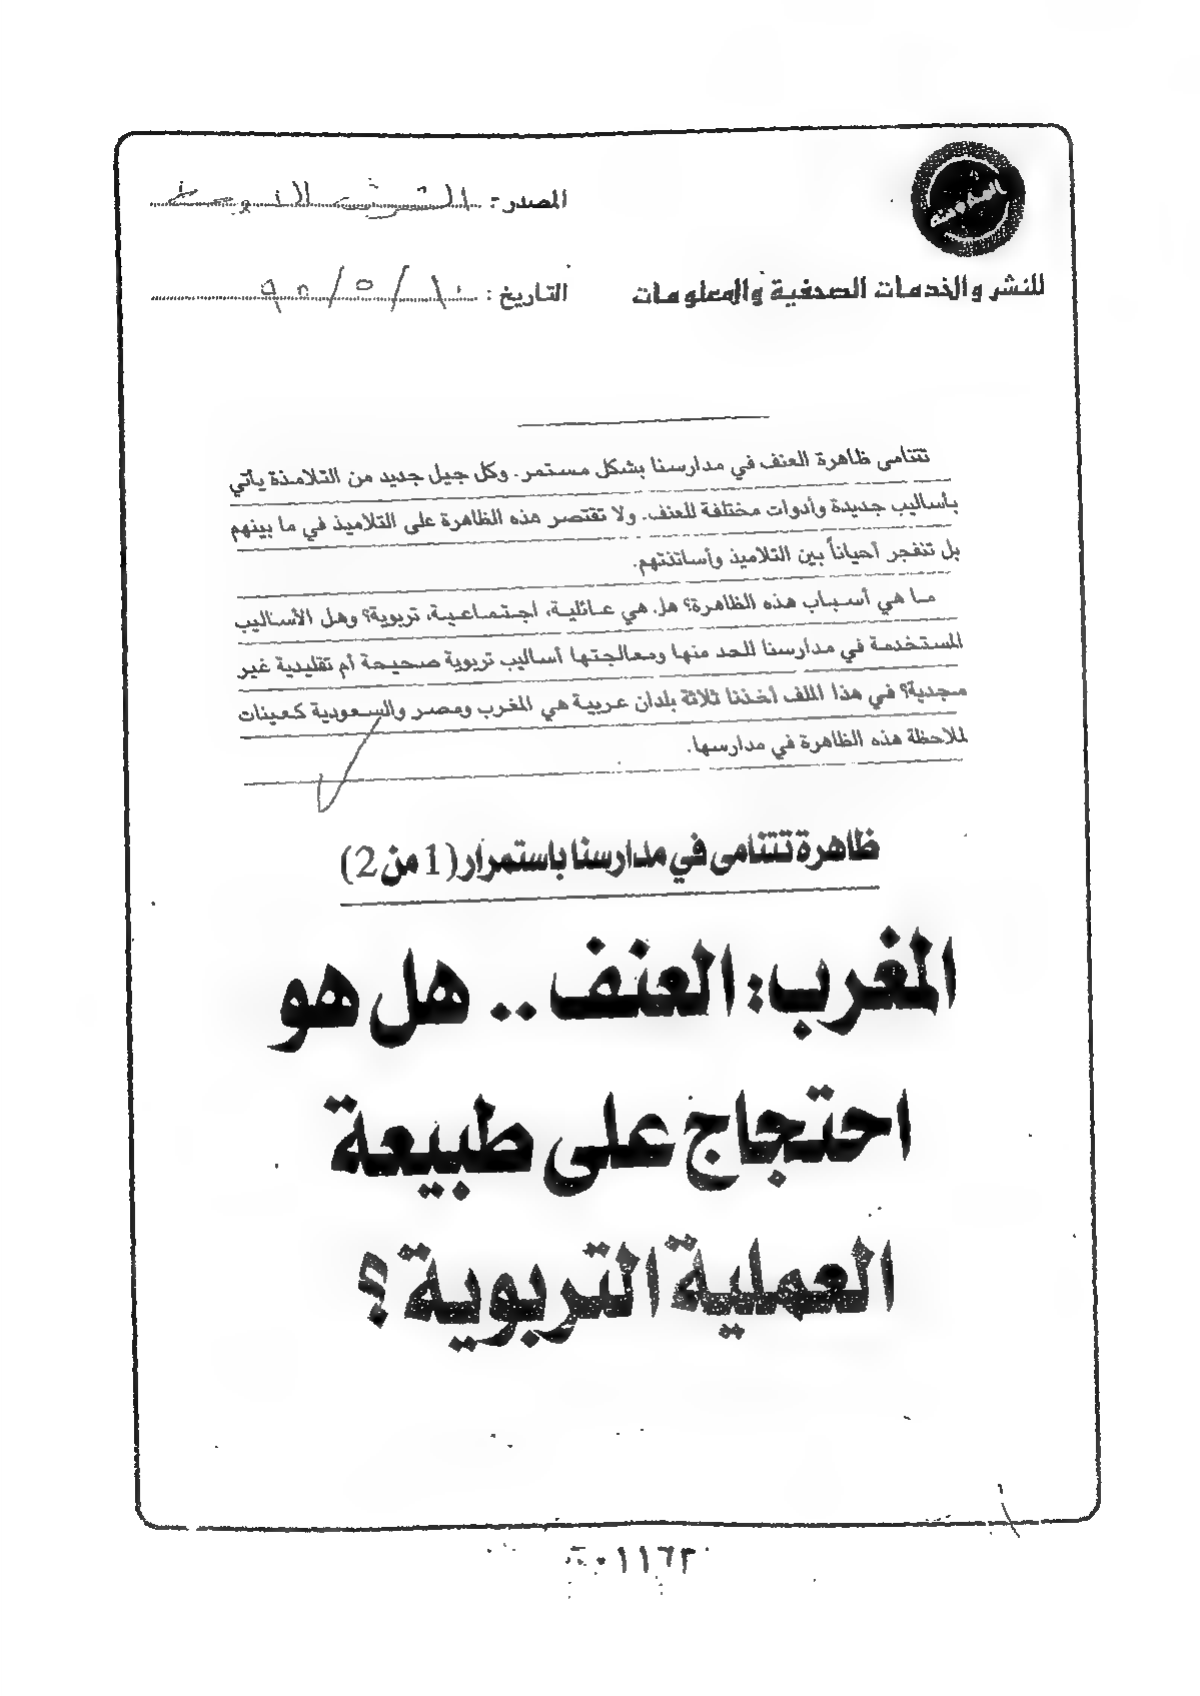 المصدر: الشرق الاوسط
التاريخ: ١٠ / ٥ /
للنشر والخدمات الصحفية والمعلومات
تتنامى ظاهرة العنف في مدارسنا بشكل مستمر. وكل جيل جديد من التلامذة يأتي
بأساليب جديدة وأدوات مختلفة للعنف. ولا تقتصر هذه الظاهرة على التلاميذ في ما بينهم
بل تنفجر أحياناً بين التلاميذ وأساتذتهم.
ما هي أسباب هذه الظاهرة؟ هل هي عائلية، اجتماعية، تربوية؟ وهل الأساليب
المستخدمة في مدارسنا للحد منها ومعالجتها أساليب تربوية صحيحة أم تقليدية غير
مجدية؟ في هذا الملف أخذنا ثلاثة بلدان عربية هي المغرب ومصر والسعودية كعينات
لملاحظة هذه الظاهرة في مدارسها.
ظاهرة تتنامى في مدارسنا باستمرار (1 من 2)
المغرب: العنف .. هل هو
احتجاج على طبيعة
العملية التربوية؟